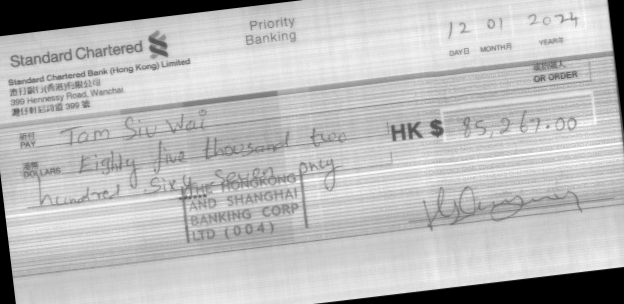 Standard Chartered
Priority
Banking
12 01 2024
DAY日 MONTH月 YEAR年
Standard Chartered Bank (Hong Kong) Limited
渣打銀行(香港)有限公司
399 Hennessy Road, Wanchai.
灣仔軒尼詩道 399 號
或持票人
OR ORDER
祈付
PAY Tam Siu Wai
港幣
DOLLARS Eighty five thousand two
HK $ 85,267.00
hundred sixy seven only
THE HONGKONG
AND SHANGHAI
BANKING CORP
LTD (004)